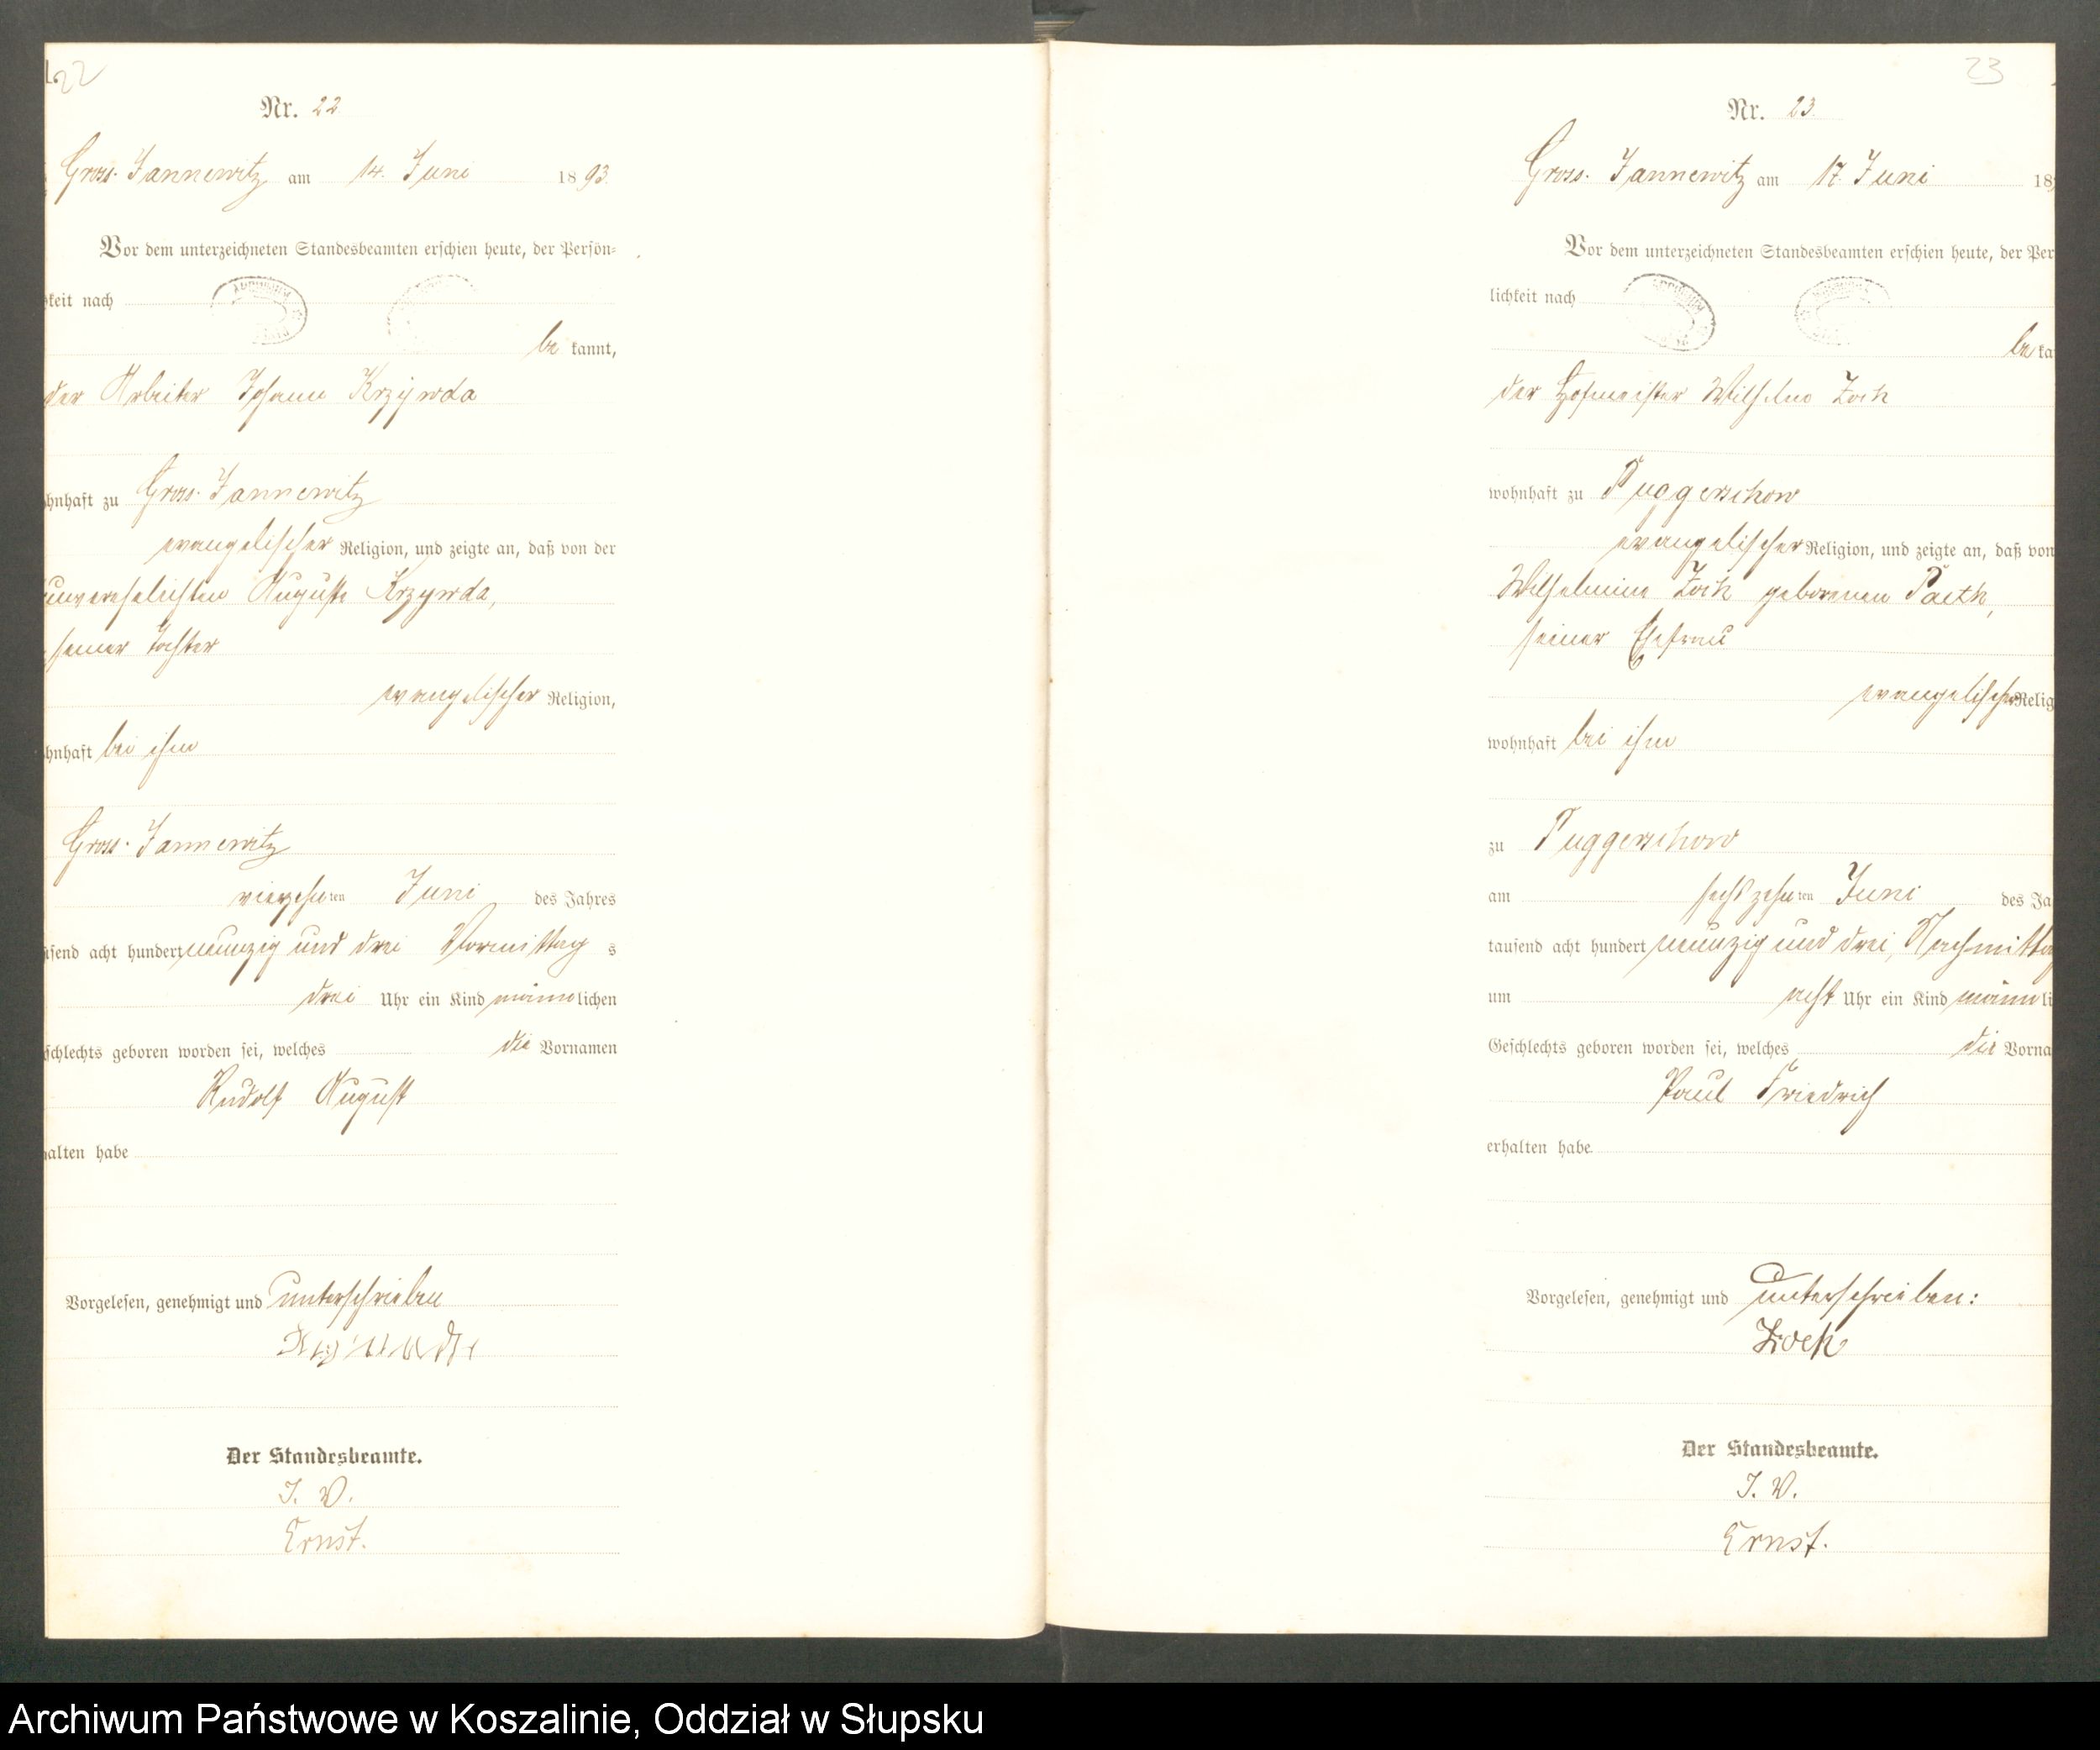 22
Nr. 22
Gross-Jannewitz am 14. Juni 1893.
Vor dem unterzeichneten Standesbeamten erschien heute, der Persön-
keit nach
be kannt,
der Arbeiter Johann Krzywda
hnhaft zu Gross-Jannewitz
evangelischer Religion, und zeigte an, daß von der
unverehelichten Auguste Krzywda,
seiner Tochter
evangelischer Religion,
hnhaft bei ihm
Gross-Jannewitz
vierzehnten Juni des Jahres
send acht hundert neunzig und drei Vormittag s
drei Uhr ein Kind männlichen
schlechts geboren worden sei, welches die Vornamen
Rudolf August
alten habe
Vorgelesen, genehmigt und unterschrieben
Der Standesbeamte.
J. V.
Ernst.
23
Nr. 23.
Gross-Jannewitz am 17. Juni 18
Vor dem unterzeichneten Standesbeamten erschien heute, der Per
lichkeit nach
be ka
der Hofmeister Wilhelm Zoch
wohnhaft zu Puggerschow
evangelischer Religion, und zeigte an, daß von
Wilhelmine Zoch geborenen Paeth,
seiner Ehefrau
evangelischer Relig
wohnhaft bei ihm
zu Puggerschow
am sechszehnten Juni des Ja
tausend acht hundert neunzig und drei, Nachmittag
um acht Uhr ein Kind männli
Geschlechts geboren worden sei, welches die Vorna
Paul Friedrich
erhalten habe
Vorgelesen, genehmigt und unterschrieben:
Zoch
Der Standesbeamte.
J. V.
Ernst.
Archiwum Państwowe w Koszalinie, Oddział w Słupsku